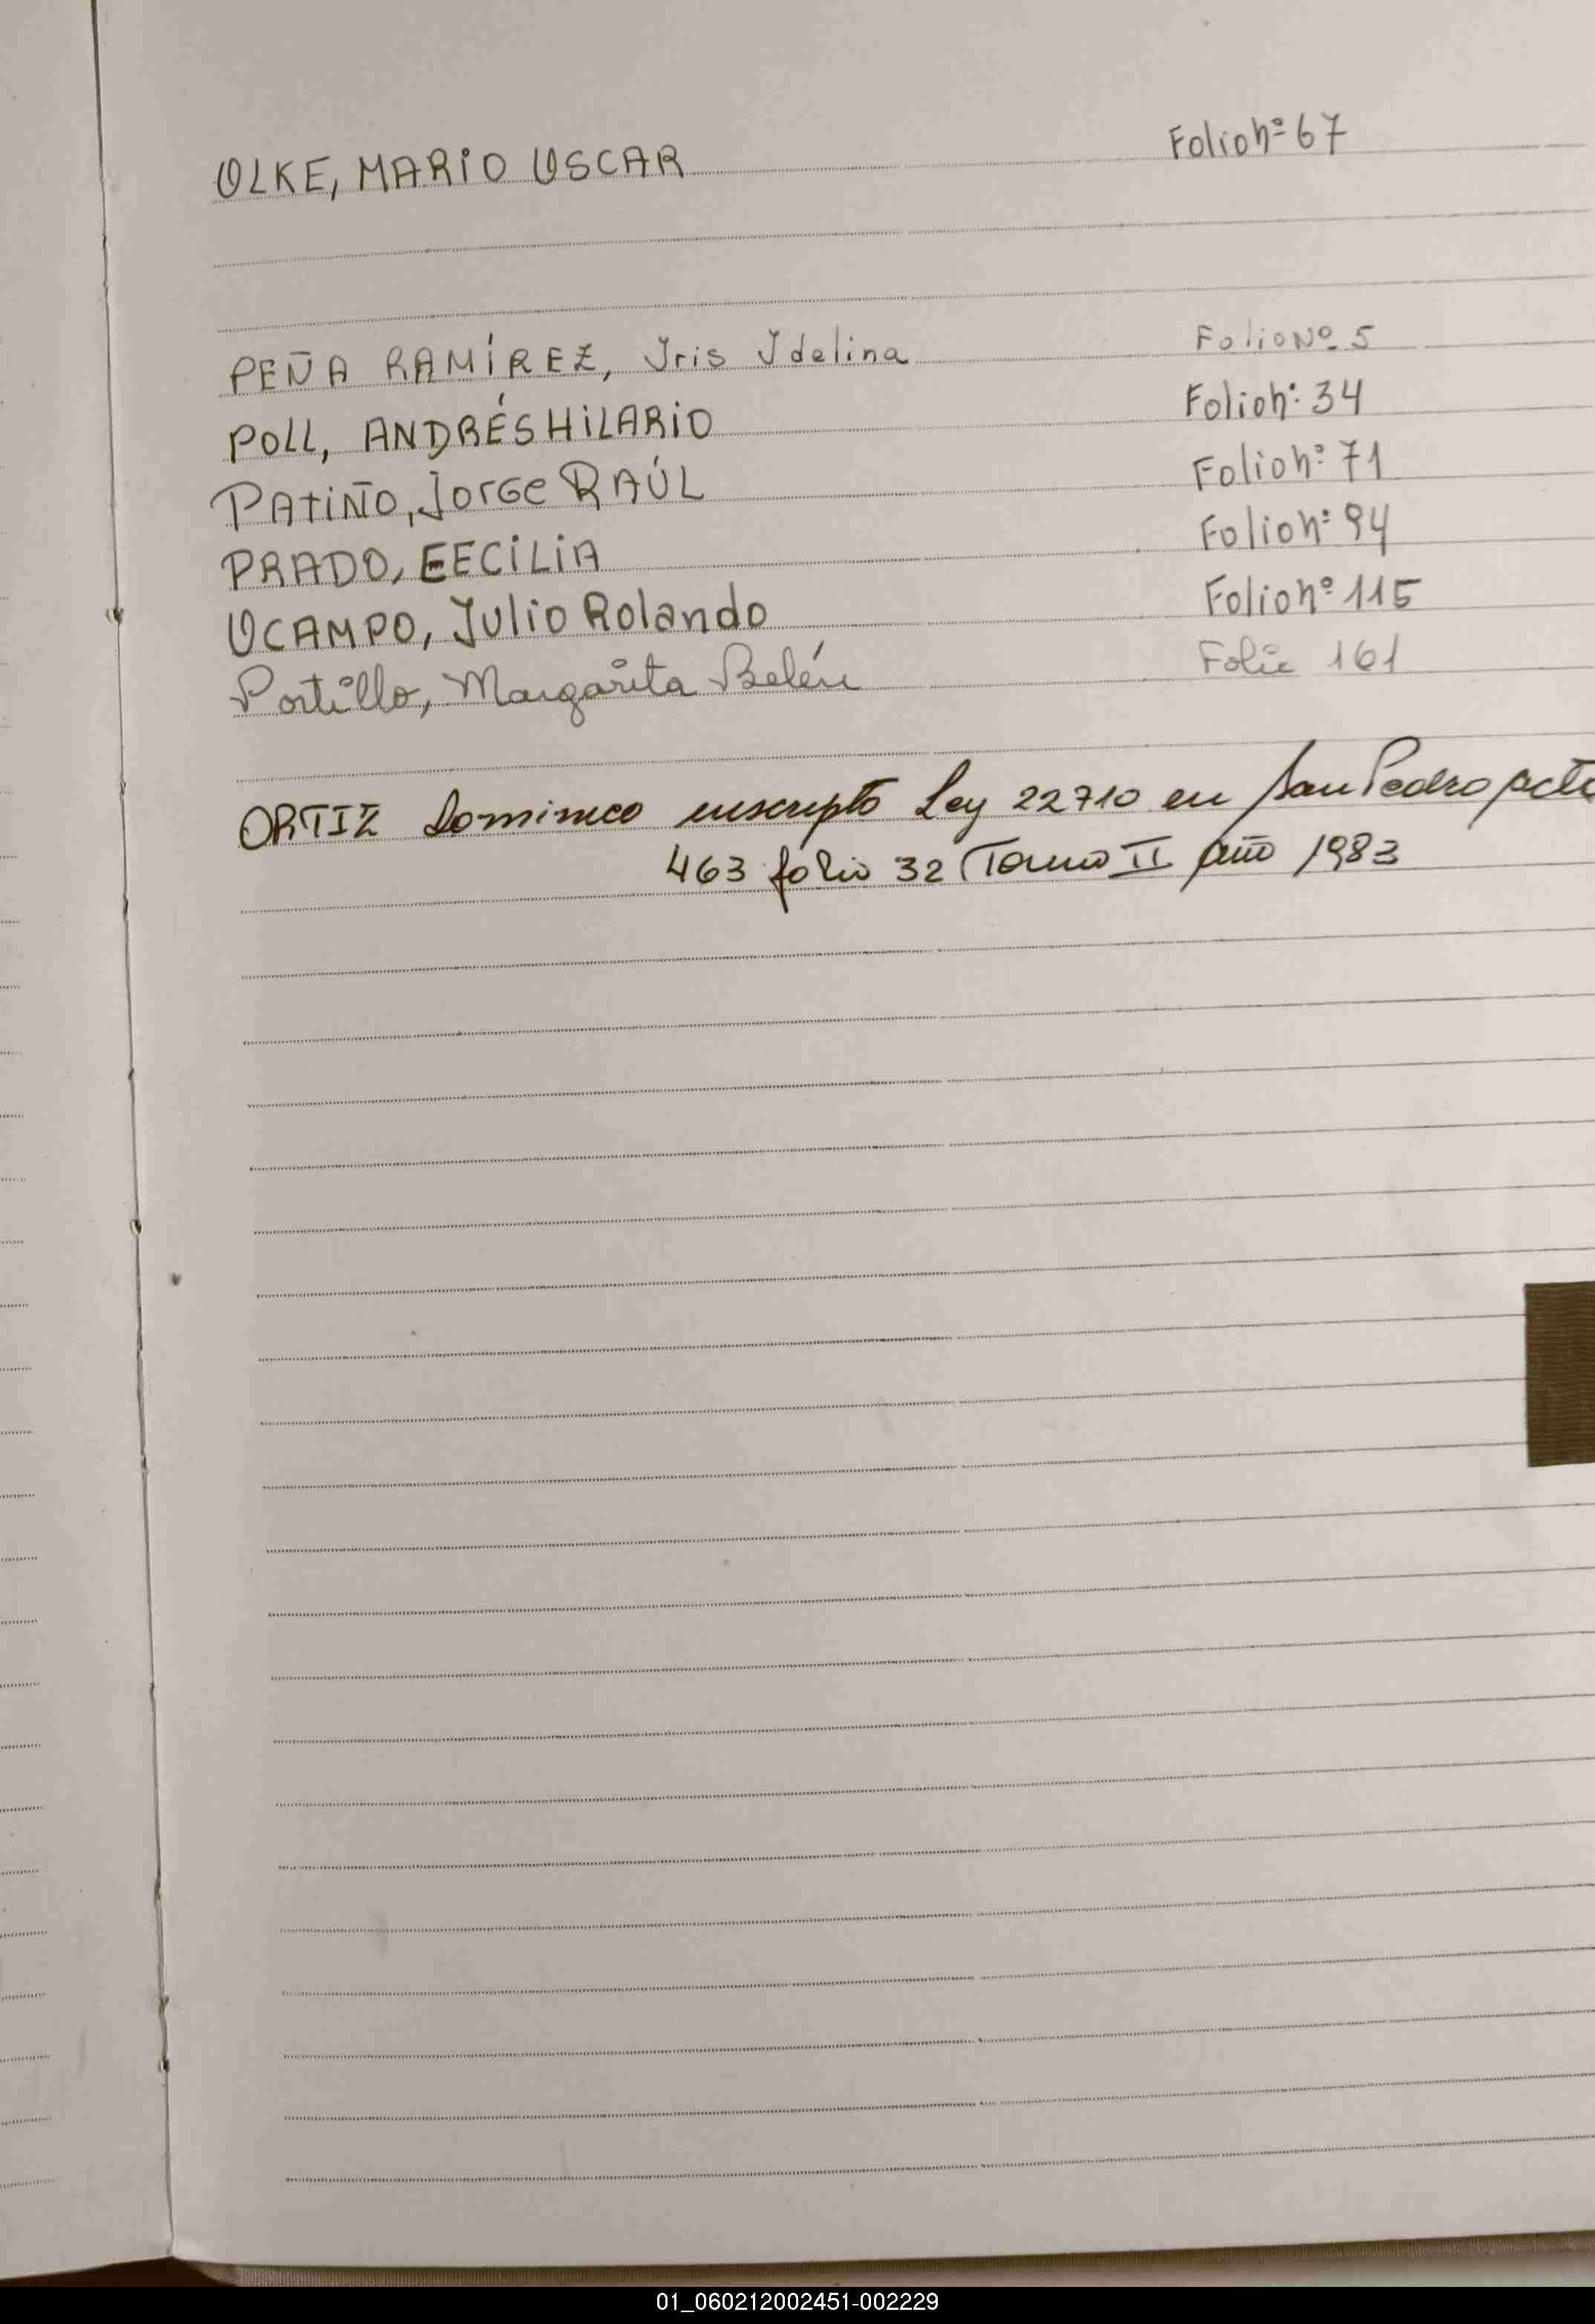 OLKE, MARIO OSCAR Folio nº 67
PEÑA RAMÍREZ, Iris Idelina Folio Nº 5
POLL, ANDRÉS HILARIO Folio nº 34
PATIÑO, Jorge RAÚL Folio nº 71
PRADO, CECILIA Folio nº 94
OCAMPO, Julio Rolando Folio nº 115
Portillo, Margarita Belén Folio 161
ORTIZ Dominico inscripto Ley 22710 en San Pedro acta
463 folio 32 Tomo II año 1983
01_060212002451-002229